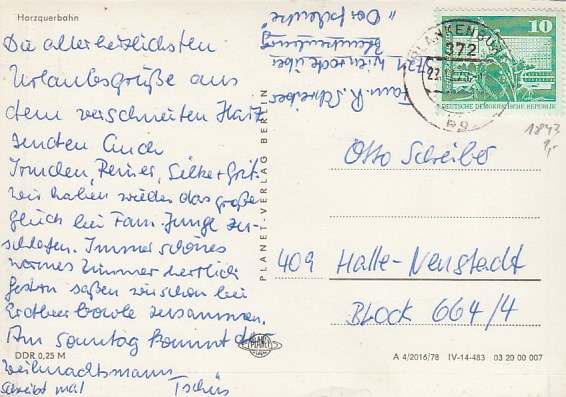 Harzquerbahn
Die allerherzlichsten
Urlaubsgrüße aus
dem verschneiten Harz
senden Euch
Trudchen, Reiner, Silke + Grit.
Wir haben wieder das große
Glück bei Fam. Junge zu
schlafen. Immer schönes
warmes Zimmer herrlich
gestern saßen wir schon bei
Erdbeerbowle zusammen.
Am Sonntag kommt der
Weihnachtsmann
schreibt mal Tschüs
DDR 0,25 M
Fam. R. Schreiber
3721 Wienrode über
Blankenburg
PLANET-VERLAG BERLIN
BLANKENBURG
372
10
DEUTSCHE DEMOKRATISCHE REPUBLIK
1843
1,-
Otto Schreiber
409 Halle-Neustadt
Block 664/4
PLANET
A 4/2016/78 IV-14-483 03 20 00 007